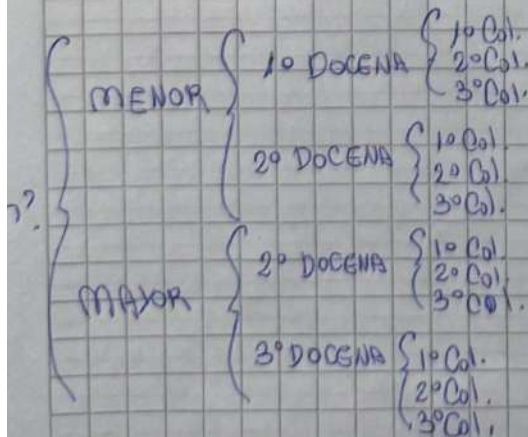 1º Col.
1º DOCENA 2º Col.
MENOR 3º Col.
2º DOCENA 1º Col.
2º Col.
3º Col.
?
2º DOCENA 1º Col.
2º Col.
MAYOR 3º Col.
3º DOCENA 1º Col.
2º Col.
3º Col.